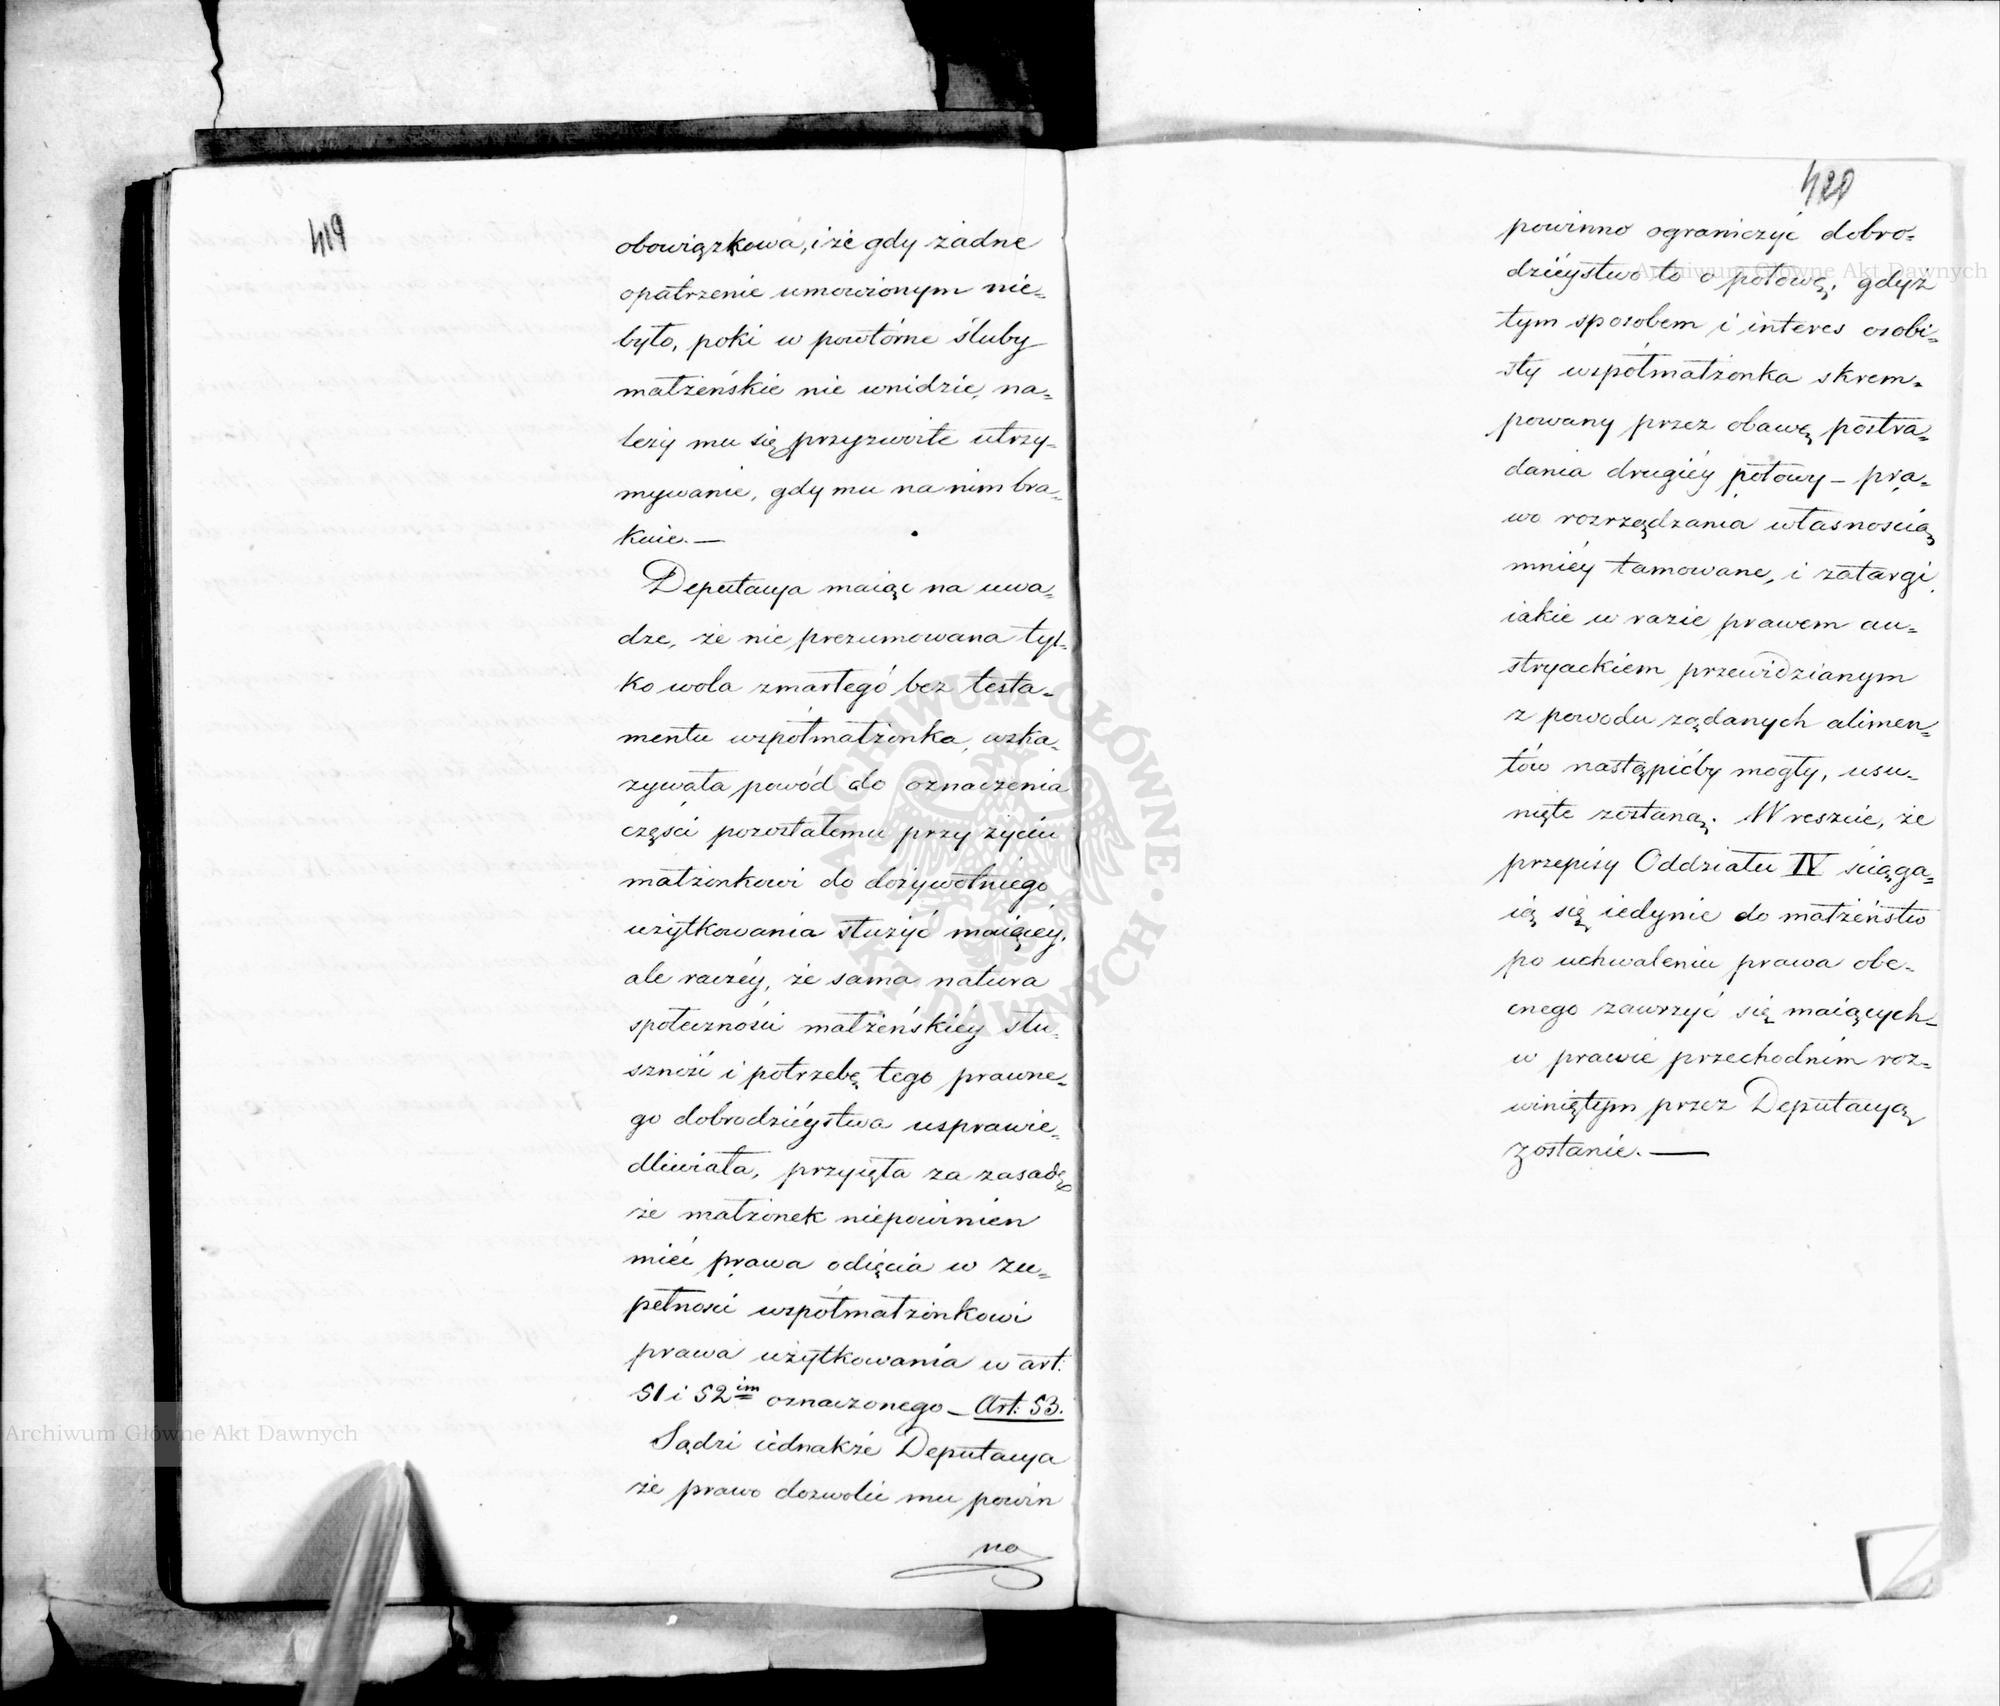 419
obowiązkowa, i że gdy żadne
opatrzenie umowionym nie-
było, poki w powtórne śluby
małżeńskie nie wnidzie, na-
leży mu się przyzwoite utrzy-
mywanie, gdy mu na nim bra-
kuie. —
Deputacya maiąc na uwa-
dze, że nie prezumowana tyl-
ko wola zmarłego bez testa-
mentu współmałżonka, wska-
zywała powód do oznaczenia
części pozostałemu przy życiu
małżonkowi do dożywotniego
użytkowania służyć maiącéy,
ale raczéy, że sama natura
społeczności małżeńskiéy słu-
szność i potrzebę tego prawne-
go dobrodziéystwa usprawie-
dliwiała, przyięła za zasadę
że małżonek niepowinien
mieć prawa odięcia w zu-
pełności współmałżonkowi
prawa użytkowania w art:
51 i 52im oznaczonego — Art: 53.
Sądzi iednakże Deputacya
że prawo dozwolić mu powin
no
420
powinno ograniczyć dobro-
dziéystwo to o połowę, gdyż
tym sposobem i interes osobi-
sty współmałżonka skrem-
powany przez obawę postra-
dania drugiéy połowy — pra-
wo rozrządzania własnością
mniéy tamowane, i zatargi
iakie w razie prawem au-
stryackiem przewidzianym
z powodu żądanych alimen-
tów nastąpićby mogły, usu-
nięte zostaną. Wreszcie, że
przepisy Oddziału IV ściąga-
ią się iedynie do małżeństw
po uchwaleniu prawa obe-
cnego zawrzyć się maiących
w prawie przechodnim roz-
winiętym przez Deputacyą
zostanie. —
Archiwum Główne Akt Dawnych
Archiwum Główne Akt Dawnych
· ARCHIWUM GŁÓWNE · AKT DAWNYCH